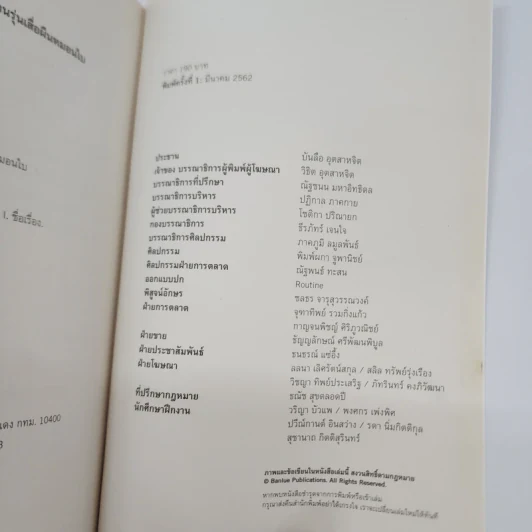 นรุ่นเสื่อผืนหมอนใบ
มอนใบ
1. ชื่อเรื่อง.
แดง กทม. 10400
3
ราคา 290 บาท
พิมพ์ครั้งที่ 1: มีนาคม 2562
ประธาน บันลือ อุตสาหจิต
เจ้าของ บรรณาธิการผู้พิมพ์ผู้โฆษณา วิธิต อุตสาหจิต
บรรณาธิการที่ปรึกษา ณัฐชนน มหาอิทธิดล
บรรณาธิการบริหาร ปฏิกาล ภาคกาย
ผู้ช่วยบรรณาธิการบริหาร โชติกา ปริณายก
กองบรรณาธิการ ธีรภัทร์ เจนใจ
บรรณาธิการศิลปกรรม ภาคภูมิ ลมูลพันธ์
ศิลปกรรม พิมพ์ผกา จูพานิชย์
ศิลปกรรมฝ่ายการตลาด ณัฐพนธ์ ทะสน
ออกแบบปก Routine
พิสูจน์อักษร ชลธร จารุสุวรรณวงค์
ฝ่ายการตลาด จุฑาทิพย์ รวมกิ่งแก้ว
กาญจนพิชญ์ ศิริภูวณิชย์
ฝ่ายขาย ธัญญลักษณ์ ศรีพัฒนพิบูล
ฝ่ายประชาสัมพันธ์ ธนธรณ์ แซ่อึ้ง
ฝ่ายโฆษณา ลลนา เลิศรัตน์สกุล / สลิล ทรัพย์รุ่งเรือง
วิชญา ทิพย์ประเสริฐ / ภัทรินทร์ คงภิวัฒนา
ที่ปรึกษากฎหมาย ธณัช สุขตลอดปี
นักศึกษาฝึกงาน วริญา บัวแพ / พงศกร เพ่งพิศ
ปวีณ์กานต์ อินสว่าง / รตา นิ่มกิตติกุล
สุชานาถ กิตติสุรินทร์
ภาพและข้อเขียนในหนังสือเล่มนี้ สงวนสิทธิ์ตามกฎหมาย
© Banlue Publications. All Rights Reserved.
หากพบหนังสือชำรุดจากการพิมพ์หรือเข้าเล่ม
กรุณาส่งคืนสำนักพิมพ์อย่าได้เกรงใจ เราจะเปลี่ยนเล่มใหม่ให้ทันที